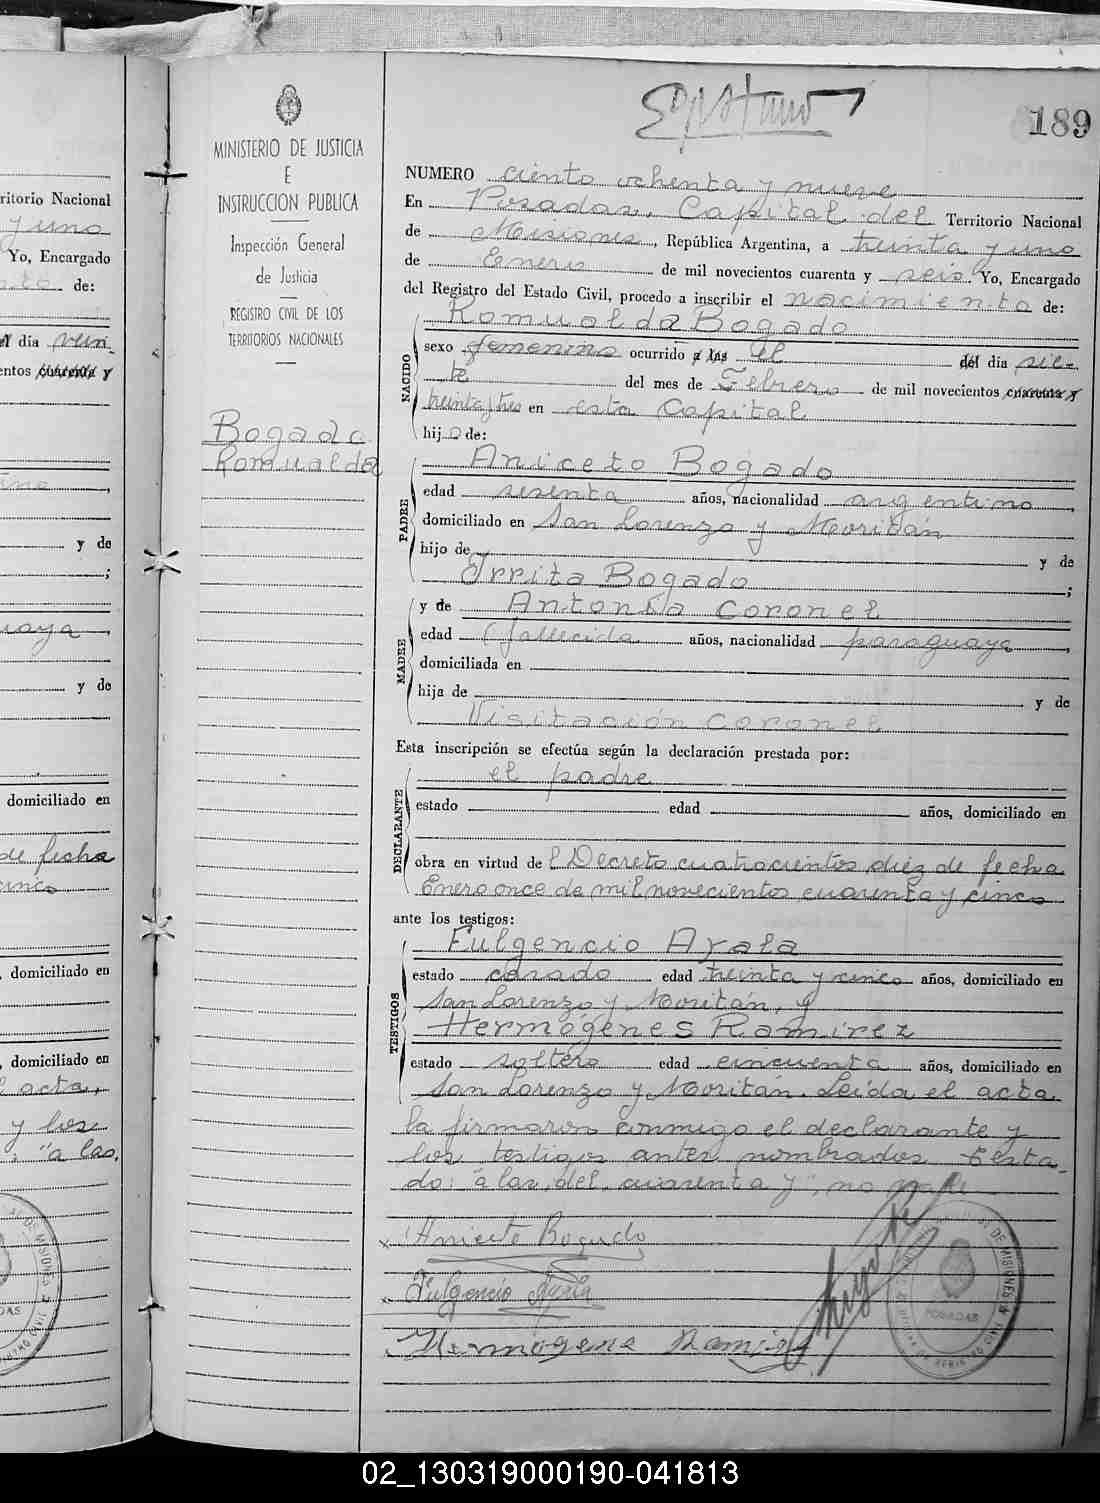 189
MINISTERIO DE JUSTICIA
E
INSTRUCCION PUBLICA
Inspección General
de Justicia
REGISTRO CIVIL DE LOS
TERRITORIOS NACIONALES
Bogado
Romualda
NUMERO ciento ochenta y nueve
En Posadas, Capital del Territorio Nacional
de Misiones, República Argentina, a treinta y uno
de Enero de mil novecientos cuarenta y seis Yo, Encargado
del Registro del Estado Civil, procedo a inscribir el nacimiento de:
Romualda Bogado
NACIDO
sexo femenino ocurrido a las el del día sie-
te del mes de Febrero de mil novecientos cuarenta y
treinta y tres en esta Capital
hija de:
PADRE
Aniceto Bogado
edad sesenta años, nacionalidad argentino,
domiciliado en San Lorenzo y Moritán
hijo de y de
Irrita Bogado ;
MADRE
y de Antonia Coronel
edad (fallecida años, nacionalidad paraguaya,
domiciliada en
hija de y de
Visitación Coronel
Esta inscripción se efectúa según la declaración prestada por:
DECLARANTE
el padre
estado edad años, domiciliado en
obra en virtud del Decreto cuatrocientos diez de fecha
Enero once de mil novecientos cuarenta y cinco
ante los testigos:
TESTIGOS
Fulgencio Ayala
estado casado edad treinta y cinco años, domiciliado en
San Lorenzo y Moritán, y
Hermógenes Ramirez
estado soltero edad cincuenta años, domiciliado en
San Lorenzo y Moritán. Leída el acta
la firmaron conmigo el declarante y
los testigos antes nombrados testa-
do: "a las, del, cuarenta y", no vale
x Aniceto Bogado
x Fulgencio Ayala
Hermogene Ramirez
POSADAS
ritorio Nacional
y uno
Yo, Encargado
de:
día vein-
entos cuarenta y
y de
;
uaya,
y de
domiciliado en
de fecha
cinco
, domiciliado en
, domiciliado en
l acta,
y los
"a las,
02_130319000190-041813